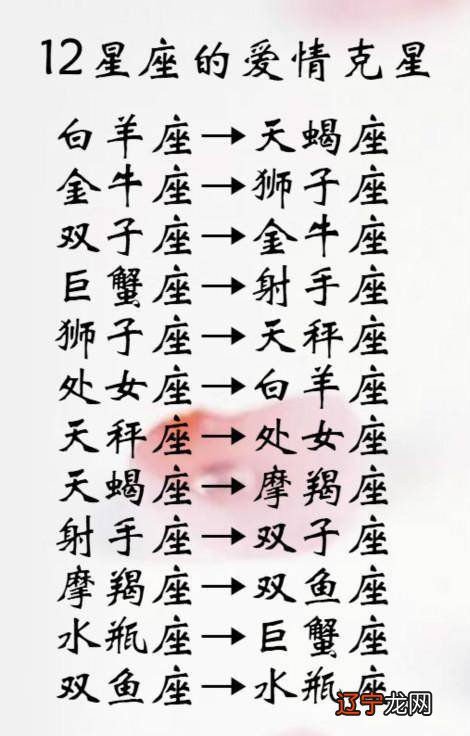 12星座的爱情克星
白羊座→天蝎座
金牛座→狮子座
双子座→金牛座
巨蟹座→射手座
狮子座→天秤座
处女座→白羊座
天秤座→处女座
天蝎座→摩羯座
射手座→双子座
摩羯座→双鱼座
水瓶座→巨蟹座
双鱼座→水瓶座
辽宁龙网